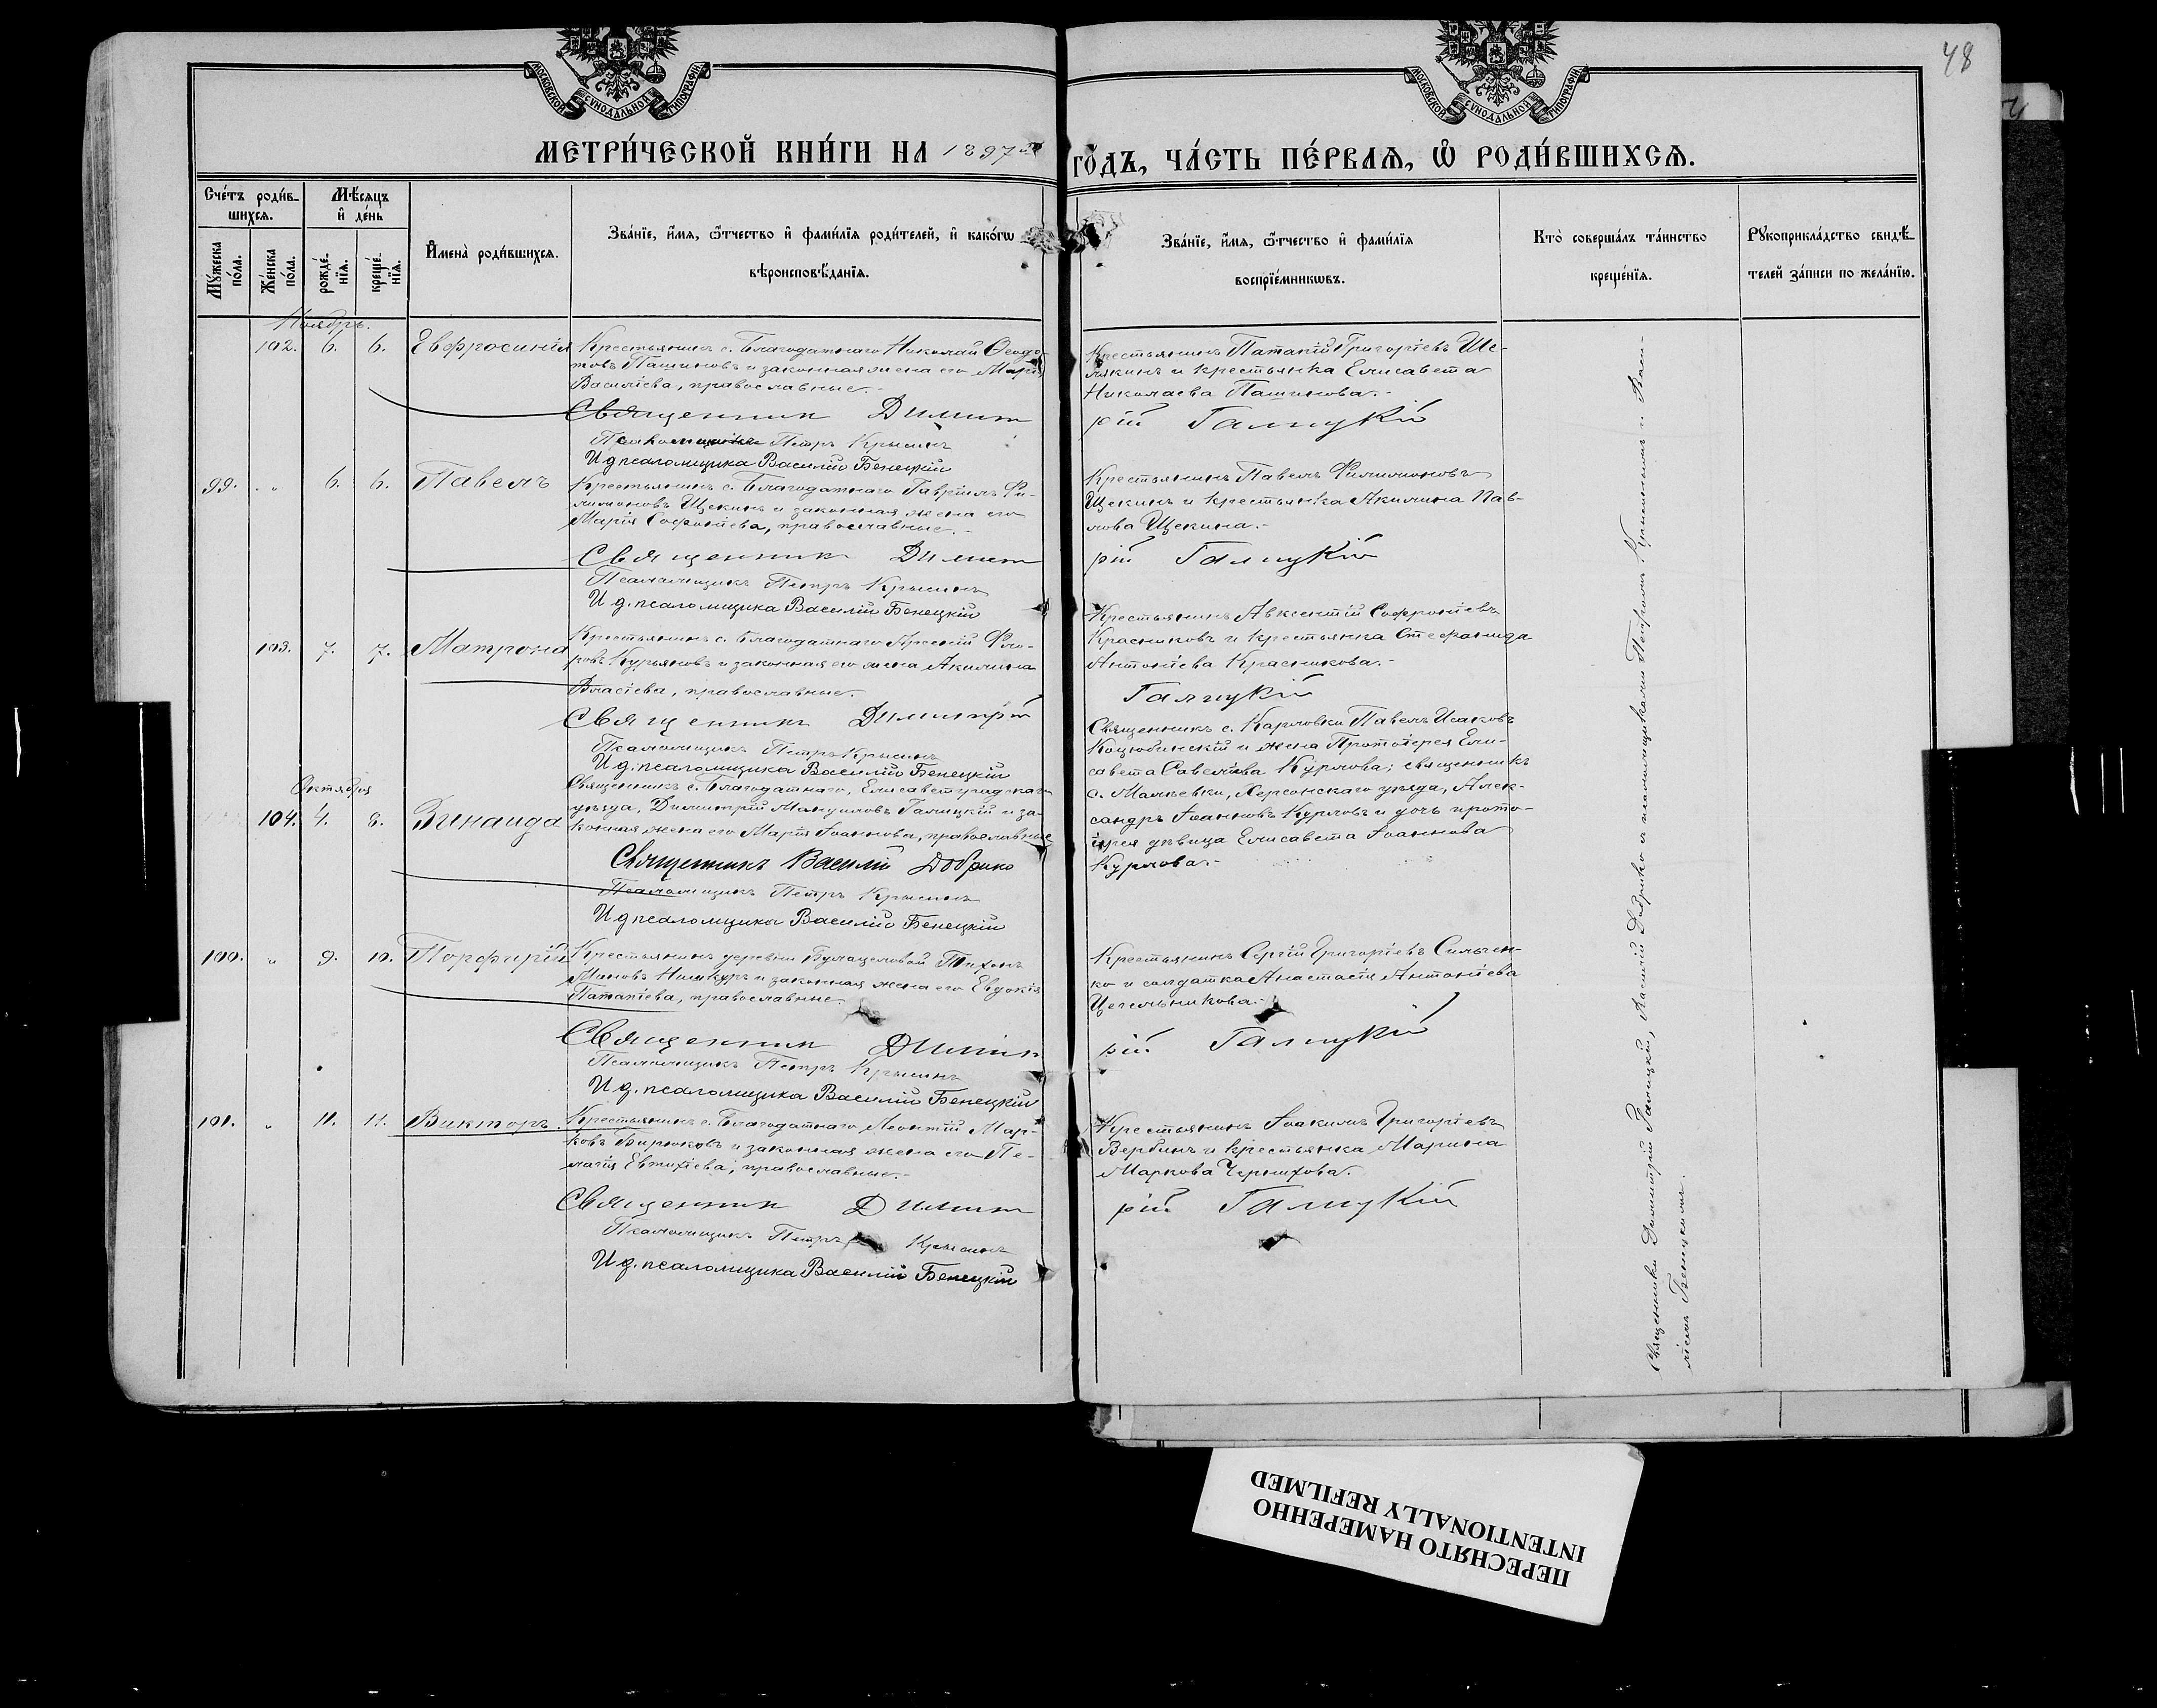 48
МОСКОВСКОЙ СѴНОДАЛЬНОЙ ТИПОГРАФІИ
МОСКОВСКОЙ СѴНОДАЛЬНОЙ ТИПОГРАФІИ
МЕТРИ́ЧЕСКОЙ КНИ́ГИ НА 1897й
ГО́ДЪ, ЧА́СТЬ ПЕ́РВАѦ, Ѽ РОДИ́ВШИХСѦ.
Сче́тъ роди́в-
шихсѧ.
Мѣ́сяцъ
и҆ де́нь
Мꙋ́жеска по́ла.
Же́нска по́ла.
рожде́-нїѧ.
креще́-нїѧ.
И҆мена̀ роди́вшихсѧ.
Зва́нїе, и҆́мѧ, ѻ҆́тчество и҆ фами́лїѧ роди́телей, и҆ како́гѡ
вѣроисповѣ́данїѧ.
Зва́нїе, и҆́мѧ, ѻ҆́тчество и҆ фами́лїѧ
воспрїе́мникѡвъ.
Кто̀ соверша́лъ та́инство
креще́нїѧ.
Рꙋкоприкла́дство свидѣ́-
телей за́писи по жела́нїю.
Ноябрь.
102. 6. 6. Евфросинія
Крестьянинъ с. Благодатнаго Николай Ѳеодо-
товъ Пашиновъ и законная жена его Марія
Василіева, православные.-
Священникъ Димит
Псаломщикъ Петръ Крысинъ
И д псаломщика Василій Бенецкій
Крестьянинъ Патапій Григоріевъ Ще-
лкинъ и крестьянка Елисавета
Николаева Пашинова.-
рій Галицкій
99. „ 6. 6. Павелъ
Крестьянинъ с. Благодатнаго Гавріилъ Фи-
лимоновъ Щекинъ и законная жена его
Марія Софоніева, православные.-
Священникъ Димит
Псаломщикъ Петръ Крысинъ
И д. псаломщика Василій Бенецкій
Крестьянинъ Павелъ Филимоновъ
Щекинъ и крестьянка Акилина Пав-
лова Щекина.-
рій Галицкій
103. 7. 7. Матрона
Крестьянинъ с. Благодатнаго Арсеній Фло-
ровъ Курьяновъ и законная его жена Акилина
Власіева, православные.
Священникъ Димитрій
Псаломщикъ Петръ Крысинъ
И д. псаломщика Василій Бенецкій
Крестьянинъ Авксентій Софроніевъ
Красниковъ и крестьянка Стефанида
Антоніева Красникова.-
Галицкій
Октября
104. 4. 8. Зинаида
Священникъ с. Благодатнаго, Елисаветградскаго
уѣзда, Димитрій Мануиловъ Галицкій и за-
конная жена его Марія Іоаннова, православные
Священникъ Василій Добрико
Псаломщикъ Петръ Крысинъ
И д псаломщика Василій Бенецкій
Священникъ с. Карловки Павелъ Исаковъ
Коцюбинскій и жена Протоіерея Ели-
савета Савеліева Курлова; священникъ
с. Малѣевки, Херсонскаго уѣзда, Алек-
сандръ Іоанновъ Курловъ и дочь прото-
іерея дѣвица Елисавета Іоаннова
Курлова.-
100. „ 9. 10. Порфирій
Крестьянинъ деревни Булацеловой Тихонъ
законная жена его Евдокія
Патапіева, православные.
Священникъ Димит
Псаломщикъ Петръ Крысинъ
И д. псаломщика Василій Бенецкій
Крестьянинъ Сергій Григоріевъ Сильчен-
ко и солдатка Анастасія Антоніева
Цегельникова.-
рій Галицкій
101. „ 11. 11. Викторъ.
Крестьянинъ с. Благодатнаго Леонтій Мар-
ковъ Бирюковъ и законная жена его Пе-
лагія Евтихіева, православные.-
Священникъ Димит
Псаломщикъ Петръ Крысинъ
И д. псаломщика Василій Бенецкій
Крестьянинъ Іоакимъ Григоріевъ
Вербинъ и крестьянка Марина
Маркова Чернихова.
рій Галицкій
Священники Димитрій Галицкій, Василій Добрико и псаломщиками Петромъ Крысинымъ и Васи-
ліемъ Бенецкимъ.
ПЕРЕСНЯТО НАМЕРЕННО
INTENTIONALLY REFILMED